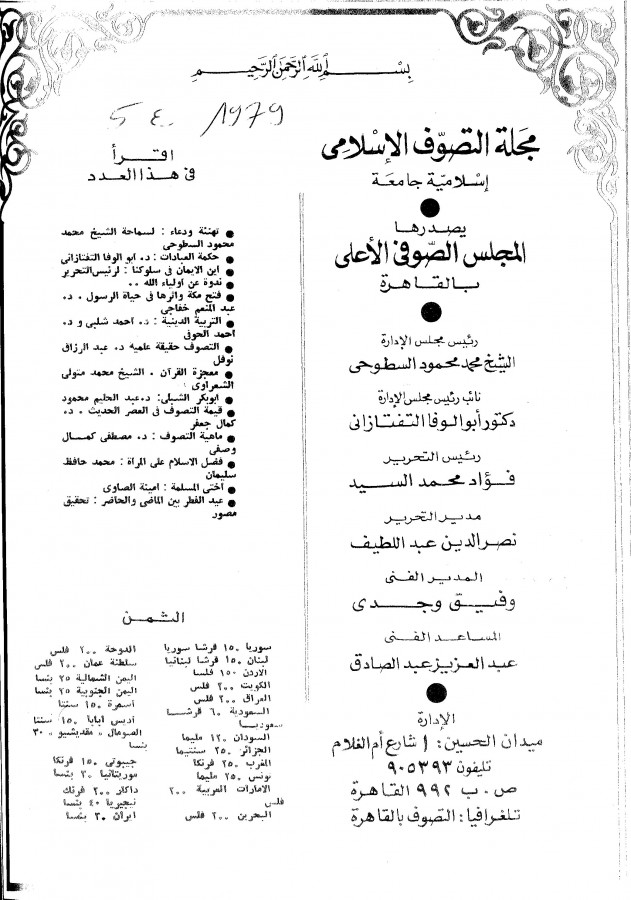 بسم الله الرحمن الرحيم
1979
مجلة التصوف الإسلامى
إسلامية جامعة
يصدرها
المجلس الصوفى الأعلى
بالقاهرة
رئيس مجلس الإدارة
الشيخ محمد محمود السطوحى
نائب رئيس مجلس الإدارة
دكتور أبو الوفا التفتازانى
رئيس التحرير
فؤاد محمد السيد
مدير التحرير
نصر الدين عبد اللطيف
المدير الفنى
وفيق وجدى
المساعد الفنى
عبد العزيز عبد الصادق
الإدارة
ميدان الحسين: ١ شارع أم الغلام
تليفون ٩٠٥٣٩٣
ص. ب ٩٩٢ القاهرة
تلغرافيا: التصوف بالقاهرة
اقرأ
فى هذا العدد
● تهنئة ودعاء : لسماحة الشيخ محمد
محمود السطوحى
● حكمة العبادات : د. ابو الوفا التفتازانى
● اين الايمان فى سلوكنا : لرئيس التحرير
● ندوة عن اولياء الله ..
● فتح مكة واثرها فى حياة الرسول . د.
عبد المنعم خفاجى
● التربية الدينية : د. احمد شلبى و د.
احمد الحوفى
● التصوف حقيقة علمية د. عبد الرزاق
نوفل
● معجزة القرآن . الشيخ محمد متولى
الشعراوى
● ابوبكر الشبلى: د. عبد الحليم محمود
● قيمة التصوف فى العصر الحديث . د.
كمال جعفر
● ماهية التصوف : د. مصطفى كمال
وصفى
● فضل الاسلام على المراة : محمد حافظ
سليمان
● اختى المسلمة : امينة الصاوى
● عيد الفطر بين الماضى والحاضر : تحقيق
مصور
الثمن
سوريا ١٥٠ قرشا سوريا
لبنان ١٥٠ قرشا لبنانيا
الاردن ١٥٠ فلسا
الكويت ٢٠٠ فلس
العراق ٢٠٠ فلس
السعودية ٦٠ قرشا
سعوديا
السودان ١٢٠ مليما
الجزائر ٢٥٠ سنتيما
المغرب ٢٥٠ فرنكا
تونس ٢٥٠ مليما
الامارات العربية ٢٠٠
فلس
البحرين ٢٠٠ فلس
الدوحة ٢٠٠ فلس
سلطنة عمان ٢٠٠ فلس
اليمن الشمالية ٢٥ بنسا
اليمن الجنوبية ٢٥ بنسا
أسمرة ١٥٠ سنتا
أديس أبابا ١٥٠ سنتا
الصومال « مقديشيو » ٣٠
بنسا
جيبوتى ١٥٠ فرنكا
موريتانيا ٣٠ بنسا
داكار ٢٠٠ فرنك
نيجيريا ٤٠ بنسا
ايران ٣٠ بنسا